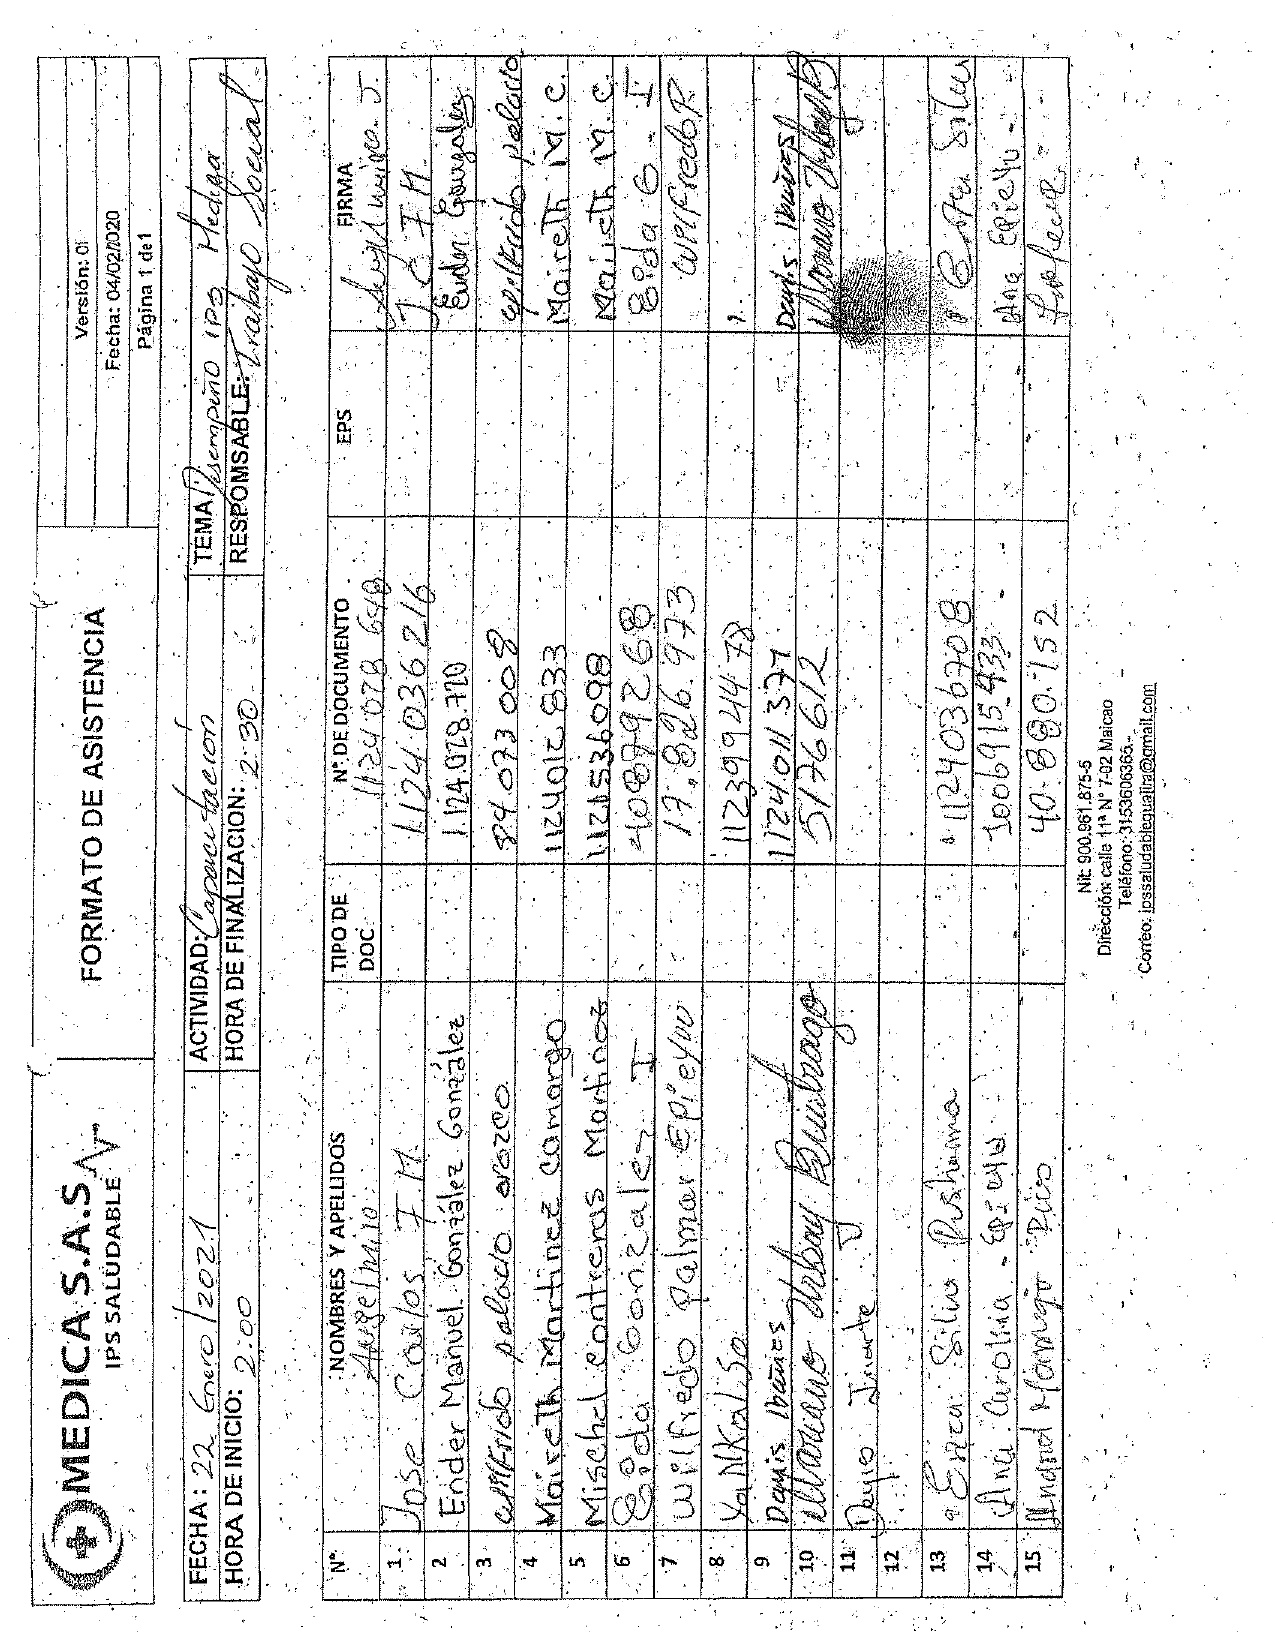 MEDICA S.A.S
IPS SALUDABLE
FORMATO DE ASISTENCIA
Versión: 01
Fecha: 04/02/2020
Página 1 de 1
FECHA: 22 Enero /2021 ACTIVIDAD: Capacitación TEMA: Desempeño IPS Medica
HORA DE INICIO: 2:00 HORA DE FINALIZACION: 2:30 RESPOMSABLE: Trabajo Social
Nº NOMBRES Y APELLIDOS TIPO DE DOC Nº DE DOCUMENTO EPS FIRMA
Angelmiro 1124 028 648
1 Jose Carlos I M 1.124 036 216 J C I M
2 Ender Manuel González González 1.124.028.720 Ender González
3 epifrido palacio orozco 84073008 epifrido palacio
4 Maireth Martinez Camargo 1124012833 Maireth M. C.
5 Mischel contreras Martinez 1121536098 M. C.
6 Eida Gonzalez I 40879268 Eida G - I
7 wilfredo palmar EPieyuu 17.826.973 wilfredo P
8 1123994478
9 Denis Ibañes 1124011377 Denis Ibañes
10 Mariano Urbay Buitrago 5176612 Mariano Urbay B
11 Iriarte
12
13 Silva Pushaina 1124036708 Silva
14 Ana Carolina - Epieyu 1006915433 Ana Epieyu -
15 40.880.152
Nit: 900.961.875-5
Dirección: calle 11ª Nº 7-02 Maicao
Teléfono: 3153606366
Correo: ipssaludableguajira@gmail.com